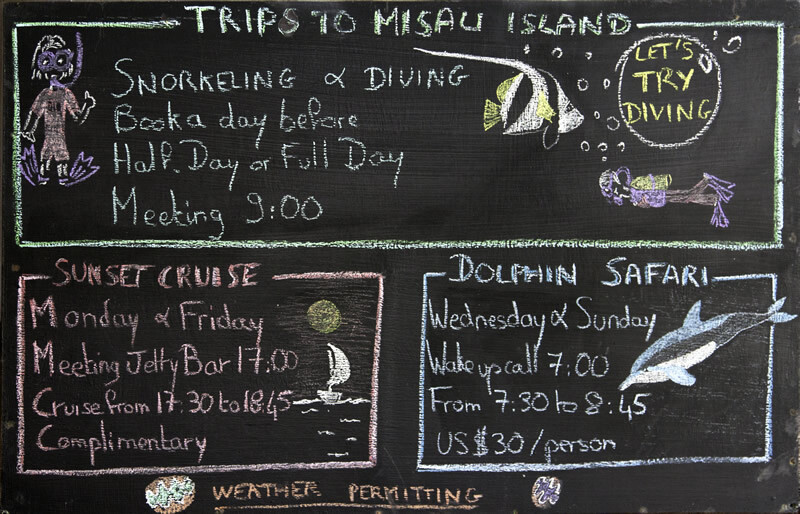 TRIPS TO MISALI ISLAND
SNORKELING & DIVING
Book a day before
Half Day or Full Day
Meeting 9:00
LET'S
TRY
DIVING
SUNSET CRUISE
Monday & Friday
Meeting Jetty Bar 17:00
Cruise from 17:30 to 18:45
Complimentary
DOLPHIN SAFARI
Wednesday & Sunday
Wake up call 7:00
From 7:30 to 8:45
US$30/person
WEATHER PERMITTING